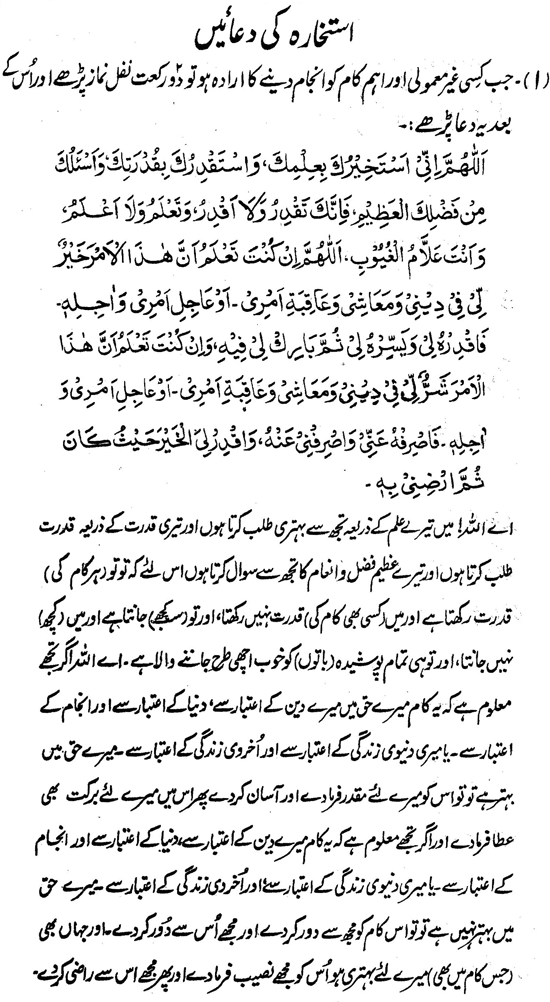 استخارہ کی دعائیں
(۱)۔ جب کسی غیر معمولی اور اہم کام کو انجام دینے کا ارادہ ہو تو دو رکعت نفل نماز پڑھے اور اُس کے
بعد یہ دعا پڑھے:۔
اَللّٰهُمَّ اِنِّیْ اَسْتَخِیْرُكَ بِعِلْمِكَ، وَاسْتَقْدِرُكَ بِقُدْرَتِكَ، وَاَسْئَلُكَ
مِنْ فَضْلِكَ الْعَظِیْمِ، فَاِنَّكَ تَقْدِرُ وَلَا اَقْدِرُ، وَتَعْلَمُ وَلَا اَعْلَمُ،
وَاَنْتَ عَلَّامُ الْغُیُوْبِ، اَللّٰهُمَّ اِنْ كُنْتَ تَعْلَمُ اَنَّ هٰذَا الْاَمْرَ خَیْرٌ
لِّیْ فِیْ دِیْنِیْ وَمَعَاشِیْ وَعَاقِبَةِ اَمْرِیْ۔ اَوْ عَاجِلِ اَمْرِیْ وَاٰجِلِهٖ۔
فَاقْدِرْهُ لِیْ وَیَسِّرْهُ لِیْ ثُمَّ بَارِكْ لِیْ فِیْهِ، وَاِنْ كُنْتَ تَعْلَمُ اَنَّ هٰذَا
الْاَمْرَ شَرٌّ لِّیْ فِیْ دِیْنِیْ وَمَعَاشِیْ وَعَاقِبَةِ اَمْرِیْ۔ اَوْ عَاجِلِ اَمْرِیْ وَ
اٰجِلِهٖ۔ فَاصْرِفْهُ عَنِّیْ وَاصْرِفْنِیْ عَنْهُ، وَاقْدِرْ لِیَ الْخَیْرَ حَیْثُ كَانَ
ثُمَّ ارْضِنِیْ بِهٖ۔
اے اللہ! میں تیرے علم کے ذریعہ تجھ سے بہتری طلب کرتا ہوں اور تیری قدرت کے ذریعہ قدرت
طلب کرتا ہوں اور تیرے عظیم فضل و انعام کا تجھ سے سوال کرتا ہوں اس لئے کہ تو تو (ہر کام کی)
قدرت رکھتا ہے اور میں (کسی بھی کام کی) قدرت نہیں رکھتا، اور تو (سب کچھ) جانتا ہے اور میں (کچھ)
نہیں جانتا، اور تو ہی تمام پوشیدہ (باتوں) کو خوب اچھی طرح جاننے والا ہے۔ اے اللہ اگر تجھے
معلوم ہے کہ یہ کام میرے حق میں میرے دین کے اعتبار سے، دنیا کے اعتبار سے اور انجام کے
اعتبار سے۔ یا میری دنیوی زندگی کے اعتبار سے اور اُخروی زندگی کے اعتبار سے۔ میرے حق میں
بہتر ہے تو تو اس کو میرے لئے مقدر فرما دے اور آسان کر دے پھر اس میں میرے لئے برکت بھی
عطا فرما دے اور اگر تجھے معلوم ہے کہ یہ کام میرے دین کے اعتبار سے، دنیا کے اعتبار سے اور انجام
کے اعتبار سے۔ یا میری دنیوی زندگی کے اعتبار سے اور اُخروی زندگی کے اعتبار سے۔ میرے حق
میں بہتر نہیں ہے تو تو اس کام کو مجھ سے دور کر دے اور مجھے اُس سے دُور کر دے۔ اور جہاں بھی
(جس کام میں بھی) میرے لئے بہتری ہو اُس کو مجھے نصیب فرما دے اور پھر مجھے اس سے راضی کر دے۔